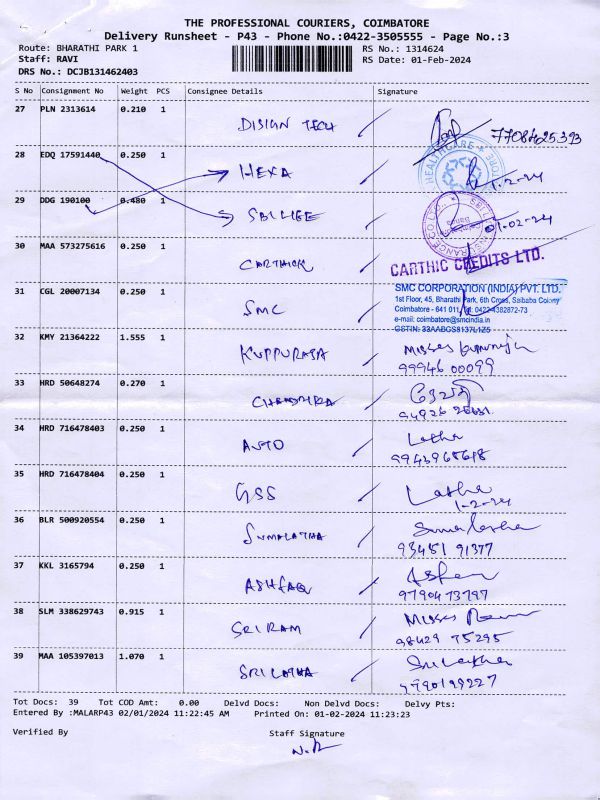 THE PROFESSIONAL COURIERS, COIMBATORE
Delivery Runsheet - P43 - Phone No.:0422-3505555 - Page No.:3
Route: BHARATHI PARK 1 RS No.: 1314624
Staff: RAVI RS Date: 01-Feb-2024
DRS No.: DCJB131462403
S No Consignment No Weight PCS Consignee Details Signature
27 PLN 2313614 0.210 1 DISIGN TECH 7708425393
28 EDQ 17591440 0.250 1 HEXA HEALTHCARE 1-2-24
29 DDG 190100 0.480 1 SBI LIFE 01-02-24
30 MAA 573275616 0.250 1 CARTHICK CARTHIC CREDITS LTD.
31 CGL 20007134 0.250 1 SMC SMC CORPORATION (INDIA) PVT. LTD.
1st Floor, 45, Bharathi Park, 6th Cross, Saibaba Colony
Coimbatore - 641 011, Tel: 0422-4382872-73
e-mail: coimbatore@smcindia.in
32 KMY 21364222 1.555 1 KUPPURAJA
99946 00099
33 HRD 50648274 0.270 1 CHANDHIRA
34 HRD 716478403 0.250 1 AUTO Latha
9943968618
35 HRD 716478404 0.250 1 GSS Latha
1-2-24
36 BLR 500920554 0.250 1 SUMALATHA Sumalatha
93451 91377
37 KKL 3165794 0.250 1 ASHFAQ
9790473797
38 SLM 338629743 0.915 1 SRIRAM
98429 75295
39 MAA 105397013 1.070 1 SRILATHA Srilatha
9790199227
Tot Docs: 39 Tot COD Amt: 0.00 Delvd Docs: Non Delvd Docs: Delvy Pts:
Entered By :MALARP43 02/01/2024 11:22:45 AM Printed On: 01-02-2024 11:23:23
Verified By Staff Signature